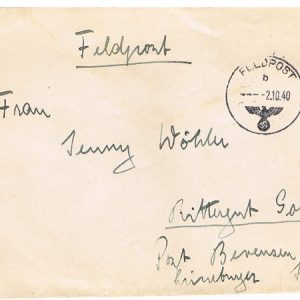 Feldpost
FELDPOST
b
-2.10.40
Frau
Jenny Wöhler
Rittergut Go
Post Bevensen
Lüneburger